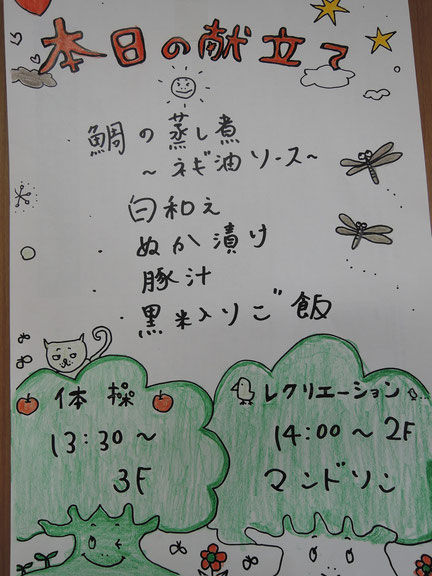 本日の献立て
鯛の蒸し煮
~ネギ油ソース~
白和え
ぬか漬け
豚汁
黒米入りご飯
体操
13:30~
3F
レクリエーション
14:00~2F
マンドリン